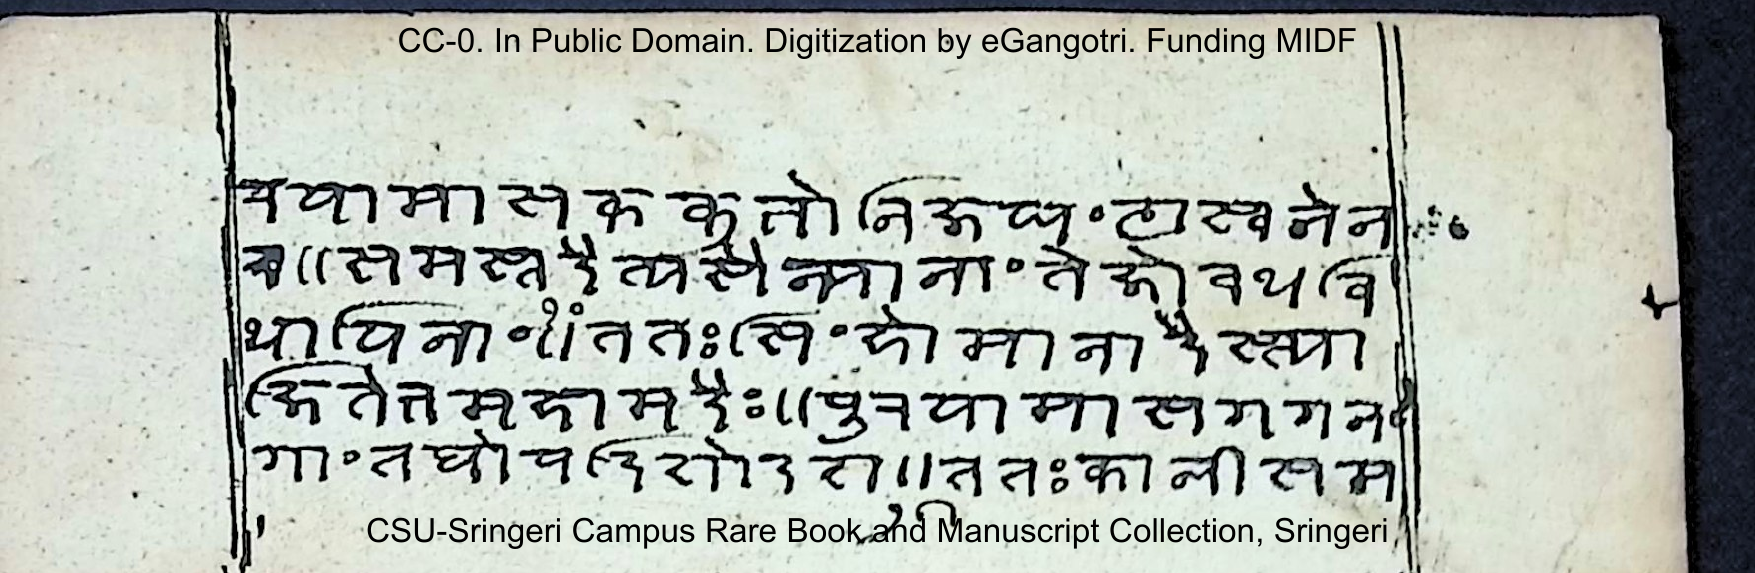 CC-0. In Public Domain. Digitization by eGangotri. Funding MIDF
रयामास ककुभो निजघण्टास्वनेन
च॥समस्तदैत्यसैन्यानां तेजोवधवि
धायिनां॥ततः सिंहो महानादैस्त्या
जितेभमहामदैः॥पुरयामास गगनं
गां तथोपदिशोदश॥ततः काली सम
CSU-Sringeri Campus Rare Book and Manuscript Collection, Sringeri